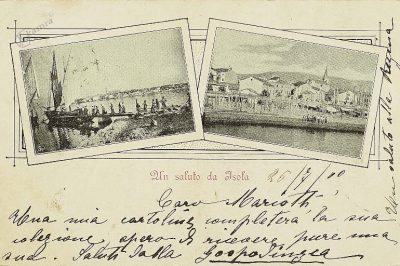 Un saluto da Isola 26/7/00
Caro Mariotti
Una mia cartolina completerà la sua
colezione, spero di ricevere pure una
sua. Saluti dalla
Un saluto alla